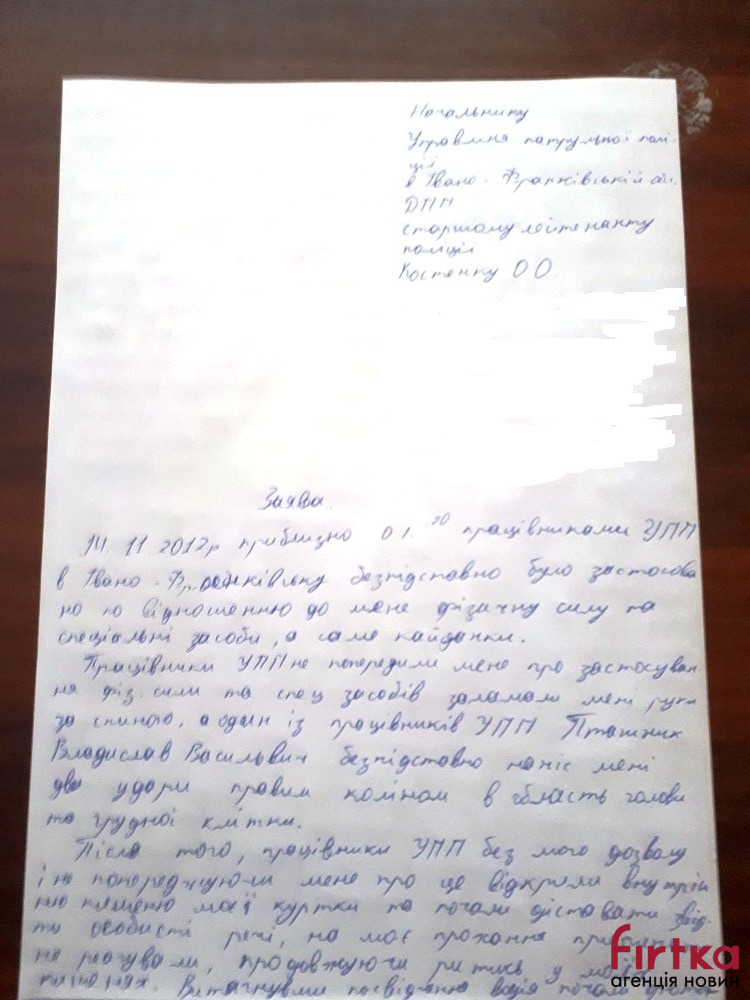 Начальнику
Управління патрульної полі-
ції
в Івано-Франківській обл.
ДПП
старшому лейтенанту
поліції
Костенку О О.
Заява.
14. 11. 2017р приблизно 01.20 працівниками УПП
в Івано-Франківську безпідставно було застосова
но по відношенню до мене фізичну силу та
спеціальні засоби, а саме кайданки.
Працівники УПП не попередили мене про застосуван
ня фіз. сили та спец засобів заламали мені руки
за спиною, а один із працівників УПП Пташник
Владислав Васильвич безпідставно наніс мені
два удари правим коліном в область голови
та грудної клітки.
Після того, працівники УПП без мого дозволу
і не попереджуючи мене про це відкрили внутріш
ню кишеню моєї куртки та почали діставати звід-
ти особисті речі, на моє прохання припинити
не реагували, продовжуючи ритись у моїх
кишенях. Витягнувши посвідчення водія почали
firtka
агенція новин